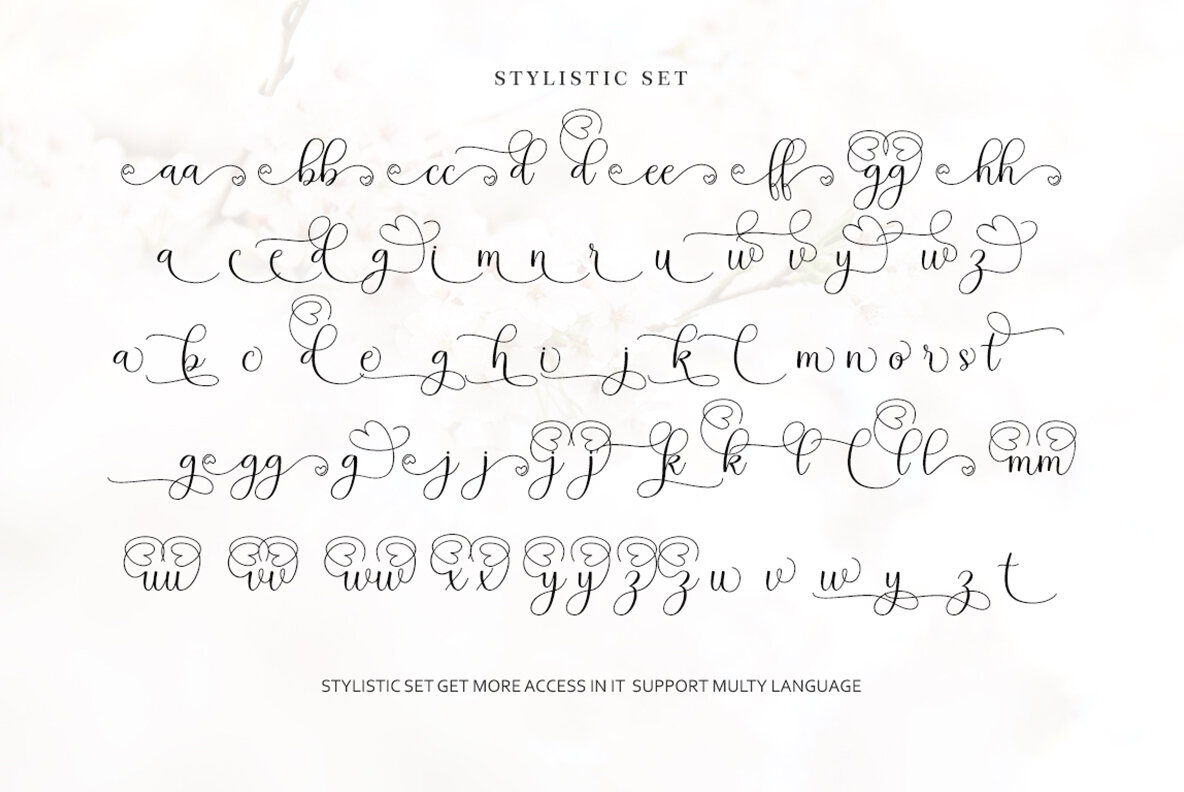 STYLISTIC SET
aa bb cc d d ee ff gg hh
a c e d g i m n r u w v y w z
a b c d e g h i j k l m n o r s t
g gg g j j jj k k l l ll mm
uu vv ww xx yy zz u v w y z t
STYLISTIC SET GET MORE ACCESS IN IT SUPPORT MULTY LANGUAGE